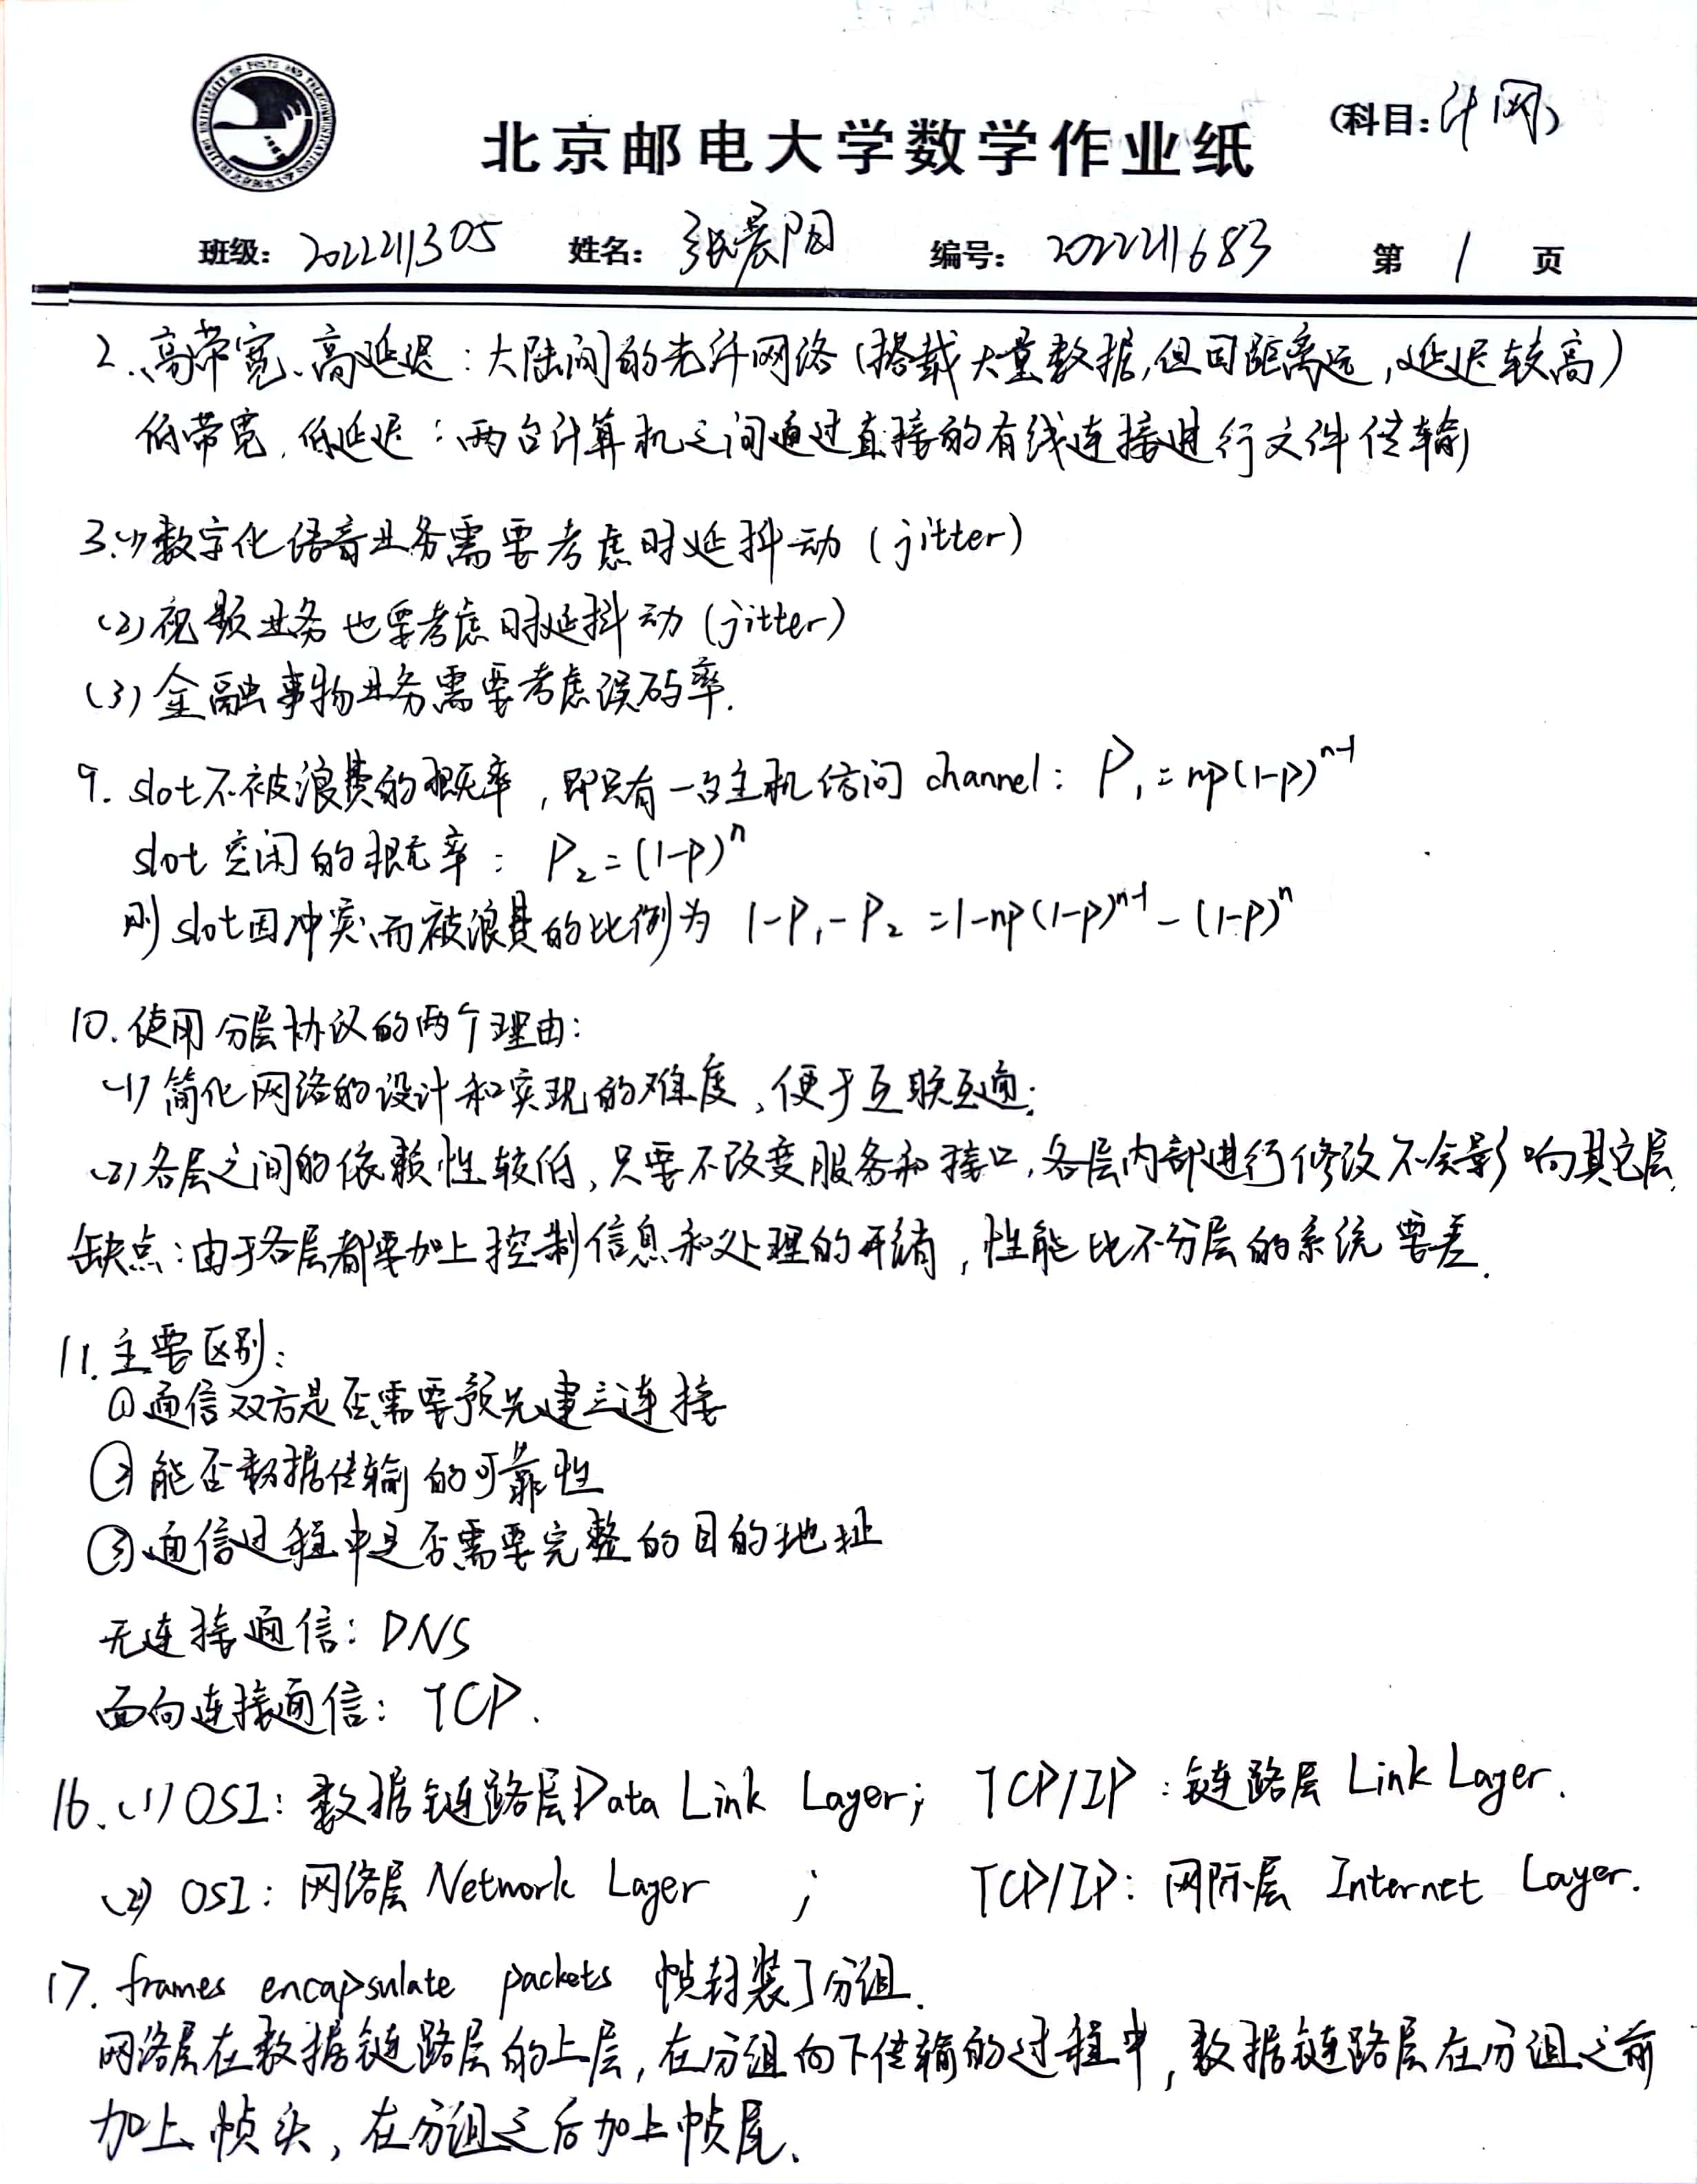 北京邮电大学数学作业纸
(科目: 计网)
班级: 2022211305 姓名: 张晨阳 编号: 2022211683 第 1 页
2. 高带宽、高延迟: 大陆间的光纤网络 (搭载大量数据, 但因距离远, 延迟较高)
低带宽、低延迟: 两台计算机之间通过直接的有线连接进行文件传输
3. (1) 数字化语音业务需要考虑时延抖动 (jitter)
(2) 视频业务也要考虑时延抖动 (jitter)
(3) 金融事物业务需要考虑误码率.
9. slot不被浪费的概率, 即只有一台主机访问 channel: P₁ = np(1-p)ⁿ⁻¹
slot 空闲的概率: P₂ = (1-p)ⁿ
则 slot因冲突而被浪费的比例为 1-P₁-P₂ = 1-np(1-p)ⁿ⁻¹ - (1-p)ⁿ
10. 使用分层协议的两个理由:
(1) 简化网络的设计和实现的难度, 便于互联互通;
(2) 各层之间的依赖性较低, 只要不改变服务和接口, 各层内部进行修改不会影响其它层.
缺点: 由于各层都要加上控制信息和处理的开销, 性能比不分层的系统要差.
11. 主要区别:
① 通信双方是否需要预先建立连接
② 能否数据传输的可靠性
③ 通信过程中是否需要完整的目的地址
无连接通信: DNS
面向连接通信: TCP.
16. (1) OSI: 数据链路层 Data Link Layer; TCP/IP: 链路层 Link Layer.
(2) OSI: 网络层 Network Layer ; TCP/IP: 网际层 Internet Layer.
17. frames encapsulate packets 帧封装了分组.
网络层在数据链路层的上层, 在分组向下传输的过程中, 数据链路层在分组之前
加上帧头, 在分组之后加上帧尾.